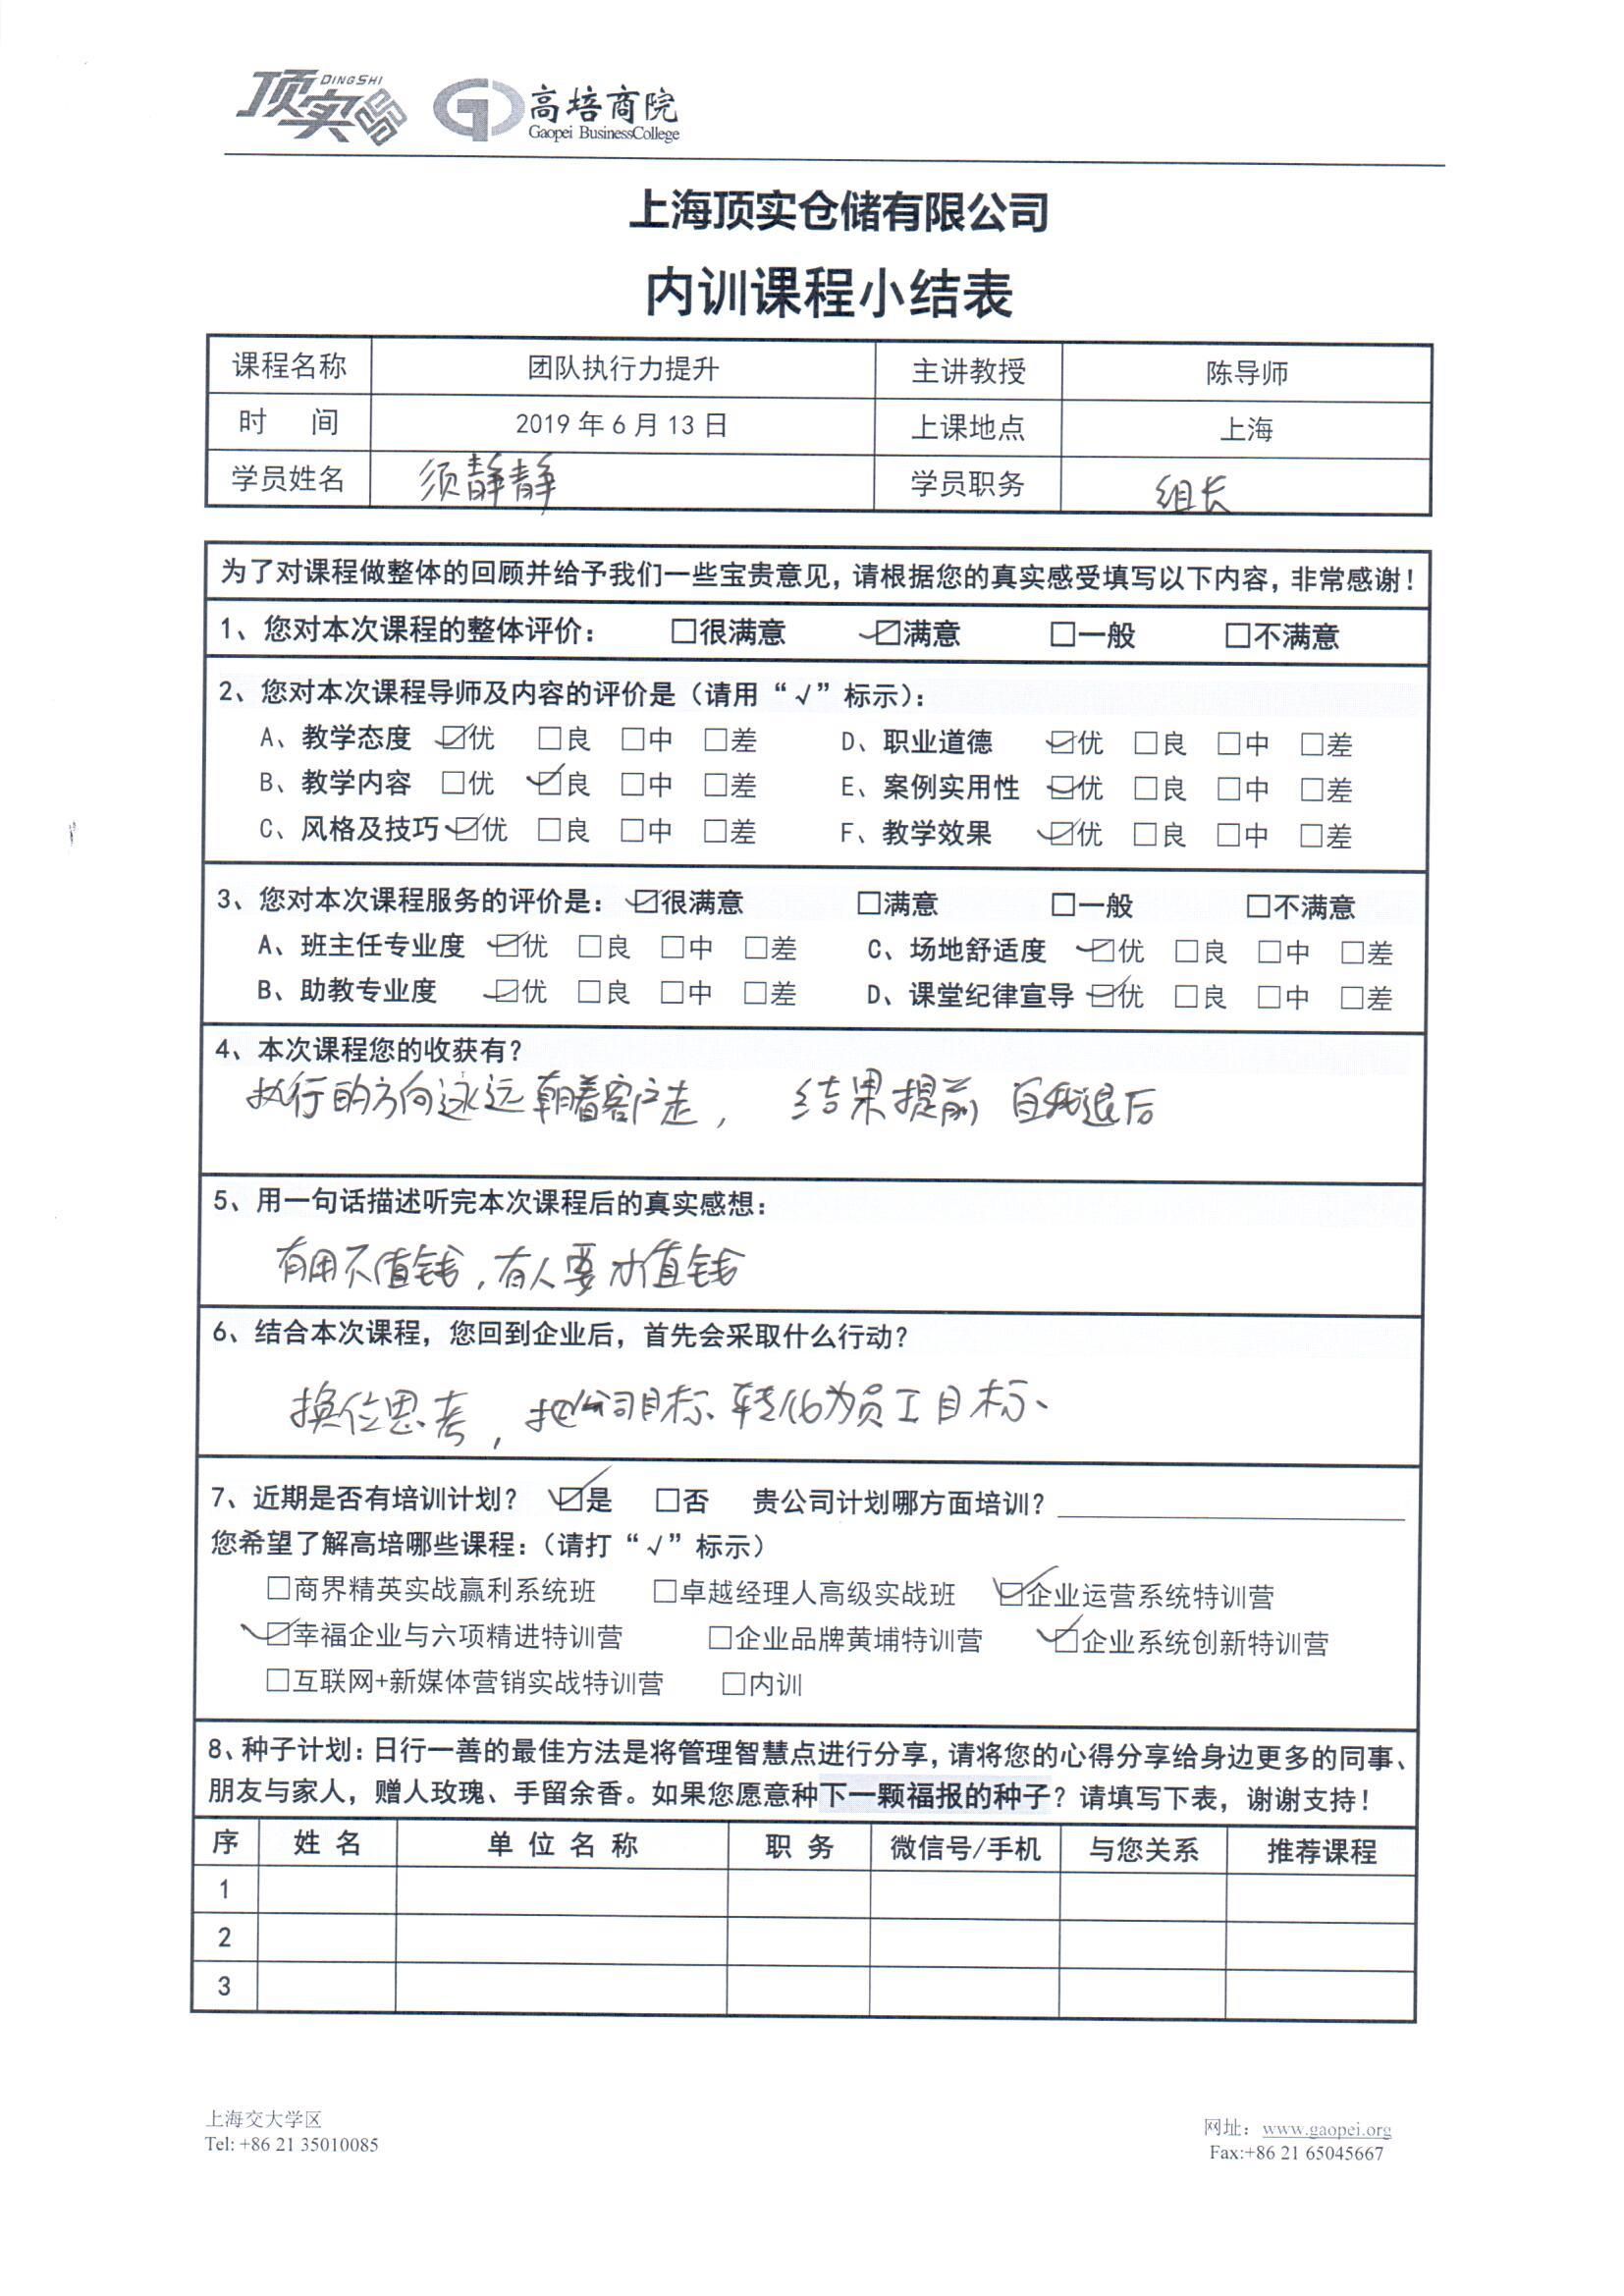 顶实 DINGSHI 高培商院
Gaopei BusinessCollege
上海顶实仓储有限公司
内训课程小结表
课程名称 团队执行力提升 主讲教授 陈导师
时 间 2019 年 6 月 13 日 上课地点 上海
学员姓名 须静静 学员职务 组长
为了对课程做整体的回顾并给予我们一些宝贵意见，请根据您的真实感受填写以下内容，非常感谢！
1、您对本次课程的整体评价： □很满意 ☑满意 □一般 □不满意
2、您对本次课程导师及内容的评价是（请用“√”标示）：
A、教学态度 ☑优 □良 □中 □差 D、职业道德 ☑优 □良 □中 □差
B、教学内容 □优 ☑良 □中 □差 E、案例实用性 ☑优 □良 □中 □差
C、风格及技巧 ☑优 □良 □中 □差 F、教学效果 ☑优 □良 □中 □差
3、您对本次课程服务的评价是： ☑很满意 □满意 □一般 □不满意
A、班主任专业度 ☑优 □良 □中 □差 C、场地舒适度 ☑优 □良 □中 □差
B、助教专业度 ☑优 □良 □中 □差 D、课堂纪律宣导 ☑优 □良 □中 □差
4、本次课程您的收获有？
执行的方向永远朝着客户走， 结果提前 自我退后
5、用一句话描述听完本次课程后的真实感想：
有用不值钱，有人要才值钱
6、结合本次课程，您回到企业后，首先会采取什么行动？
换位思考，把公司目标转化为员工目标、
7、近期是否有培训计划？ ☑是 □否 贵公司计划哪方面培训？
您希望了解高培哪些课程：（请打“√”标示）
□商界精英实战赢利系统班 □卓越经理人高级实战班 ☑企业运营系统特训营
☑幸福企业与六项精进特训营 □企业品牌黄埔特训营 ☑企业系统创新特训营
□互联网+新媒体营销实战特训营 □内训
8、种子计划：日行一善的最佳方法是将管理智慧点进行分享，请将您的心得分享给身边更多的同事、
朋友与家人，赠人玫瑰、手留余香。如果您愿意种下一颗福报的种子？请填写下表，谢谢支持！
序 姓 名 单 位 名 称 职 务 微信号/手机 与您关系 推荐课程
1
2
3
上海交大学区 网址：www.gaopei.org
Tel: +86 21 35010085 Fax:+86 21 65045667